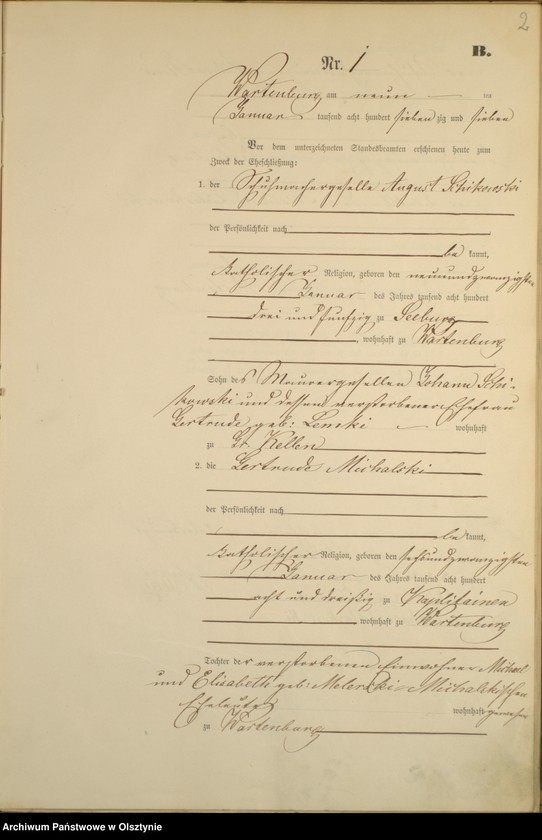 2
B.
Nr. 1
Wartenburg am neun ten
Januar tausend acht hundert sieben zig und sieben
Vor dem unterzeichneten Standesbeamten erschienen heute zum
Zweck der Eheschließung:
1. der Schuhmachergeselle August Schikowski
der Persönlichkeit nach
be kannt,
katholischer Religion, geboren den neunundzwanzigsten
Januar des Jahres tausend acht hundert
drei und fünfzig zu Seeburg
, wohnhaft zu Wartenburg
Sohn des Maurergesellen Johann Schi-
kowski und dessen verstorbener Ehefrau
Gertrude geb: Lemki wohnhaft
zu Gr. Kellen
2. die Gertrude Michalski
der Persönlichkeit nach
be kannt,
katholischer Religion, geboren den sechsundzwanzigsten
Januar des Jahres tausend acht hundert
acht und dreißig zu
wohnhaft zu Wartenburg
Tochter der verstorbenen Einwohner Michael
und Elisabeth geb: Michalskischen
Eheleute wohnhaft gewesen
zu Wartenburg
Archiwum Państwowe w Olsztynie